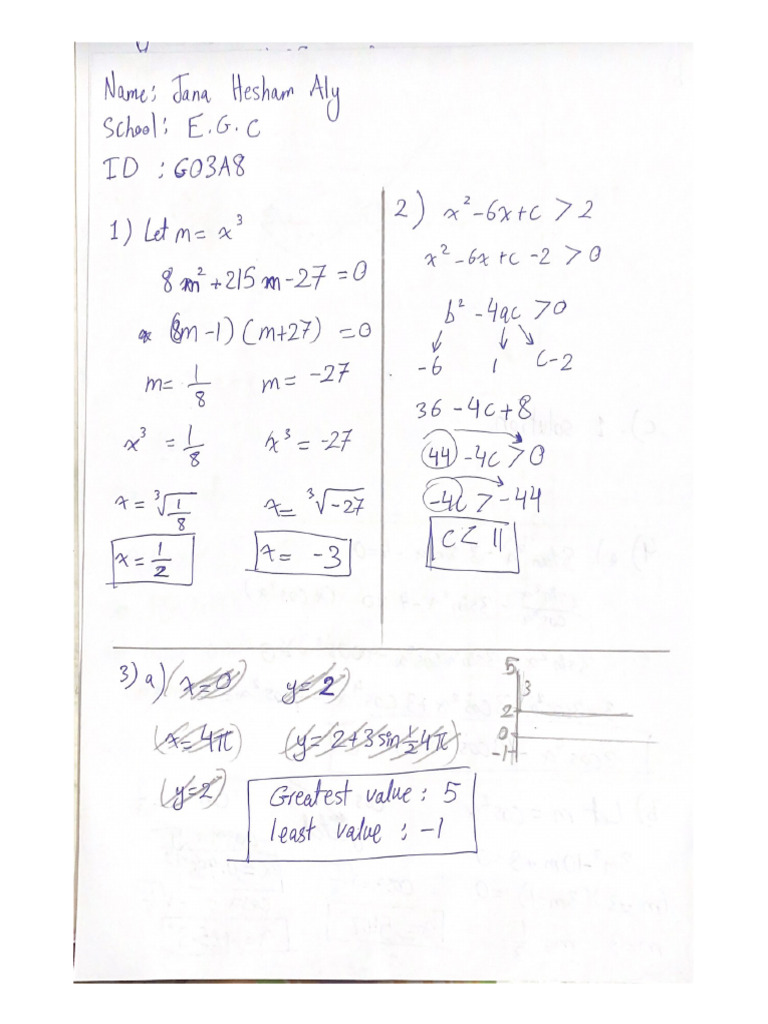 Name: Jana Hesham Aly
School: E.G.C
ID : G03A8
1) Let m = x³
8m² + 215m - 27 = 0
(8m - 1) (m + 27) = 0
m = 1/8 m = -27
x³ = 1/8 x³ = -27
x = ³√1/8 x = ³√-27
x = 1/2 x = -3
2) x² - 6x + c > 2
x² - 6x + c - 2 > 0
b² - 4ac > 0
-6 1 c-2
36 - 4c + 8
44 - 4c > 0
-4c > -44
c < 11
3) a) (x = 0) y = 2)
(x = 4π) (y = 2 + 3 sin 1/2 4π)
(y = 2)
Greatest value : 5
least value : -1
5
3
2
0
-1